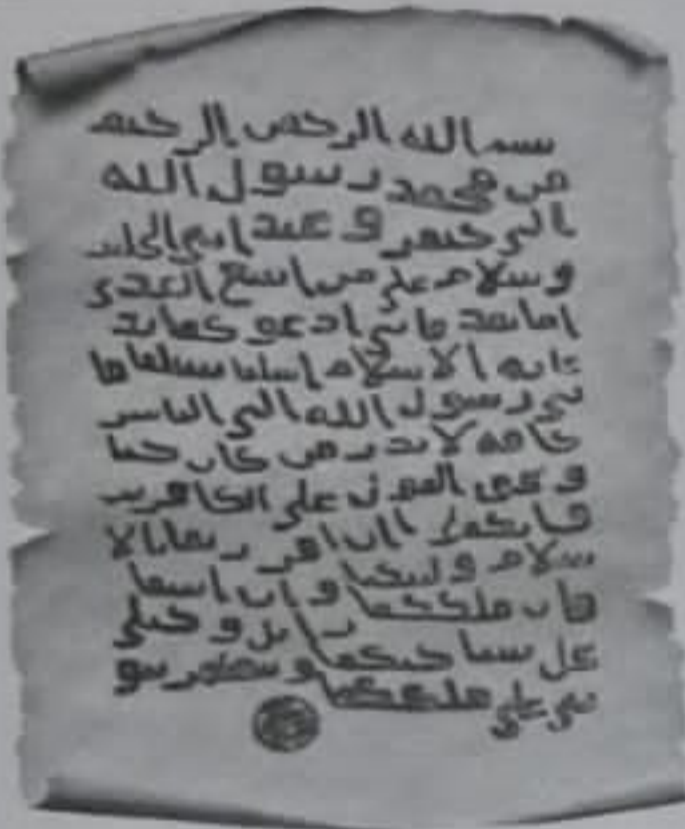 بسم الله الرحمن الرحيم
من محمد رسول الله
الى جيفر و عبد ابني الجلند
وسلام على من اتبع الهدى
اما بعد فاني ادعوكما بد
عاية الاسلام اسلما تسلما فا
ني رسول الله الى الناس
كافة لانذر من كان حيا
و يحق القول على الكافرين
فانكما ان اقررتما بالا
سلام وليتكما وان ابيتما
فان ملككما زايل و خيلي
تحل بساحتكما و تظهر نبو
تي على ملككما